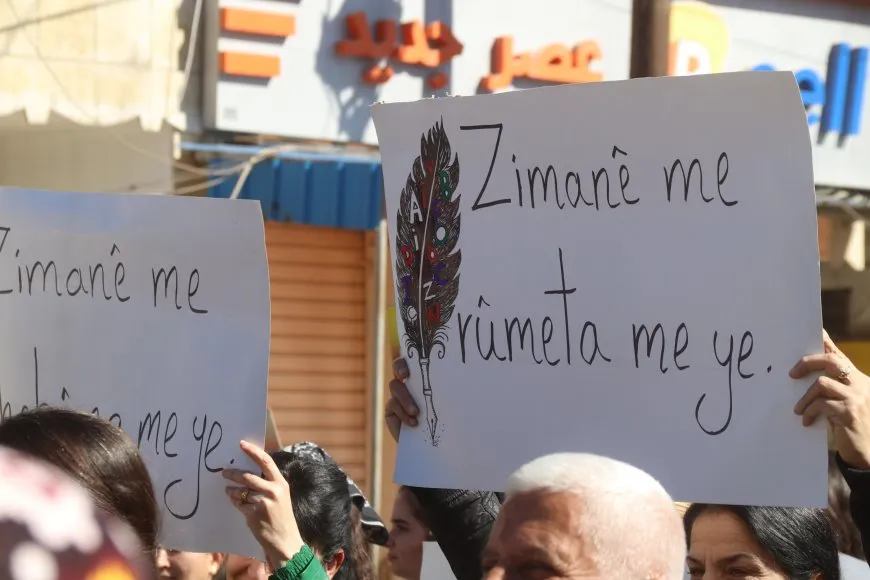 عصر جديد
Zimanê me
rûmeta me ye.
Zimanê me
me ye.